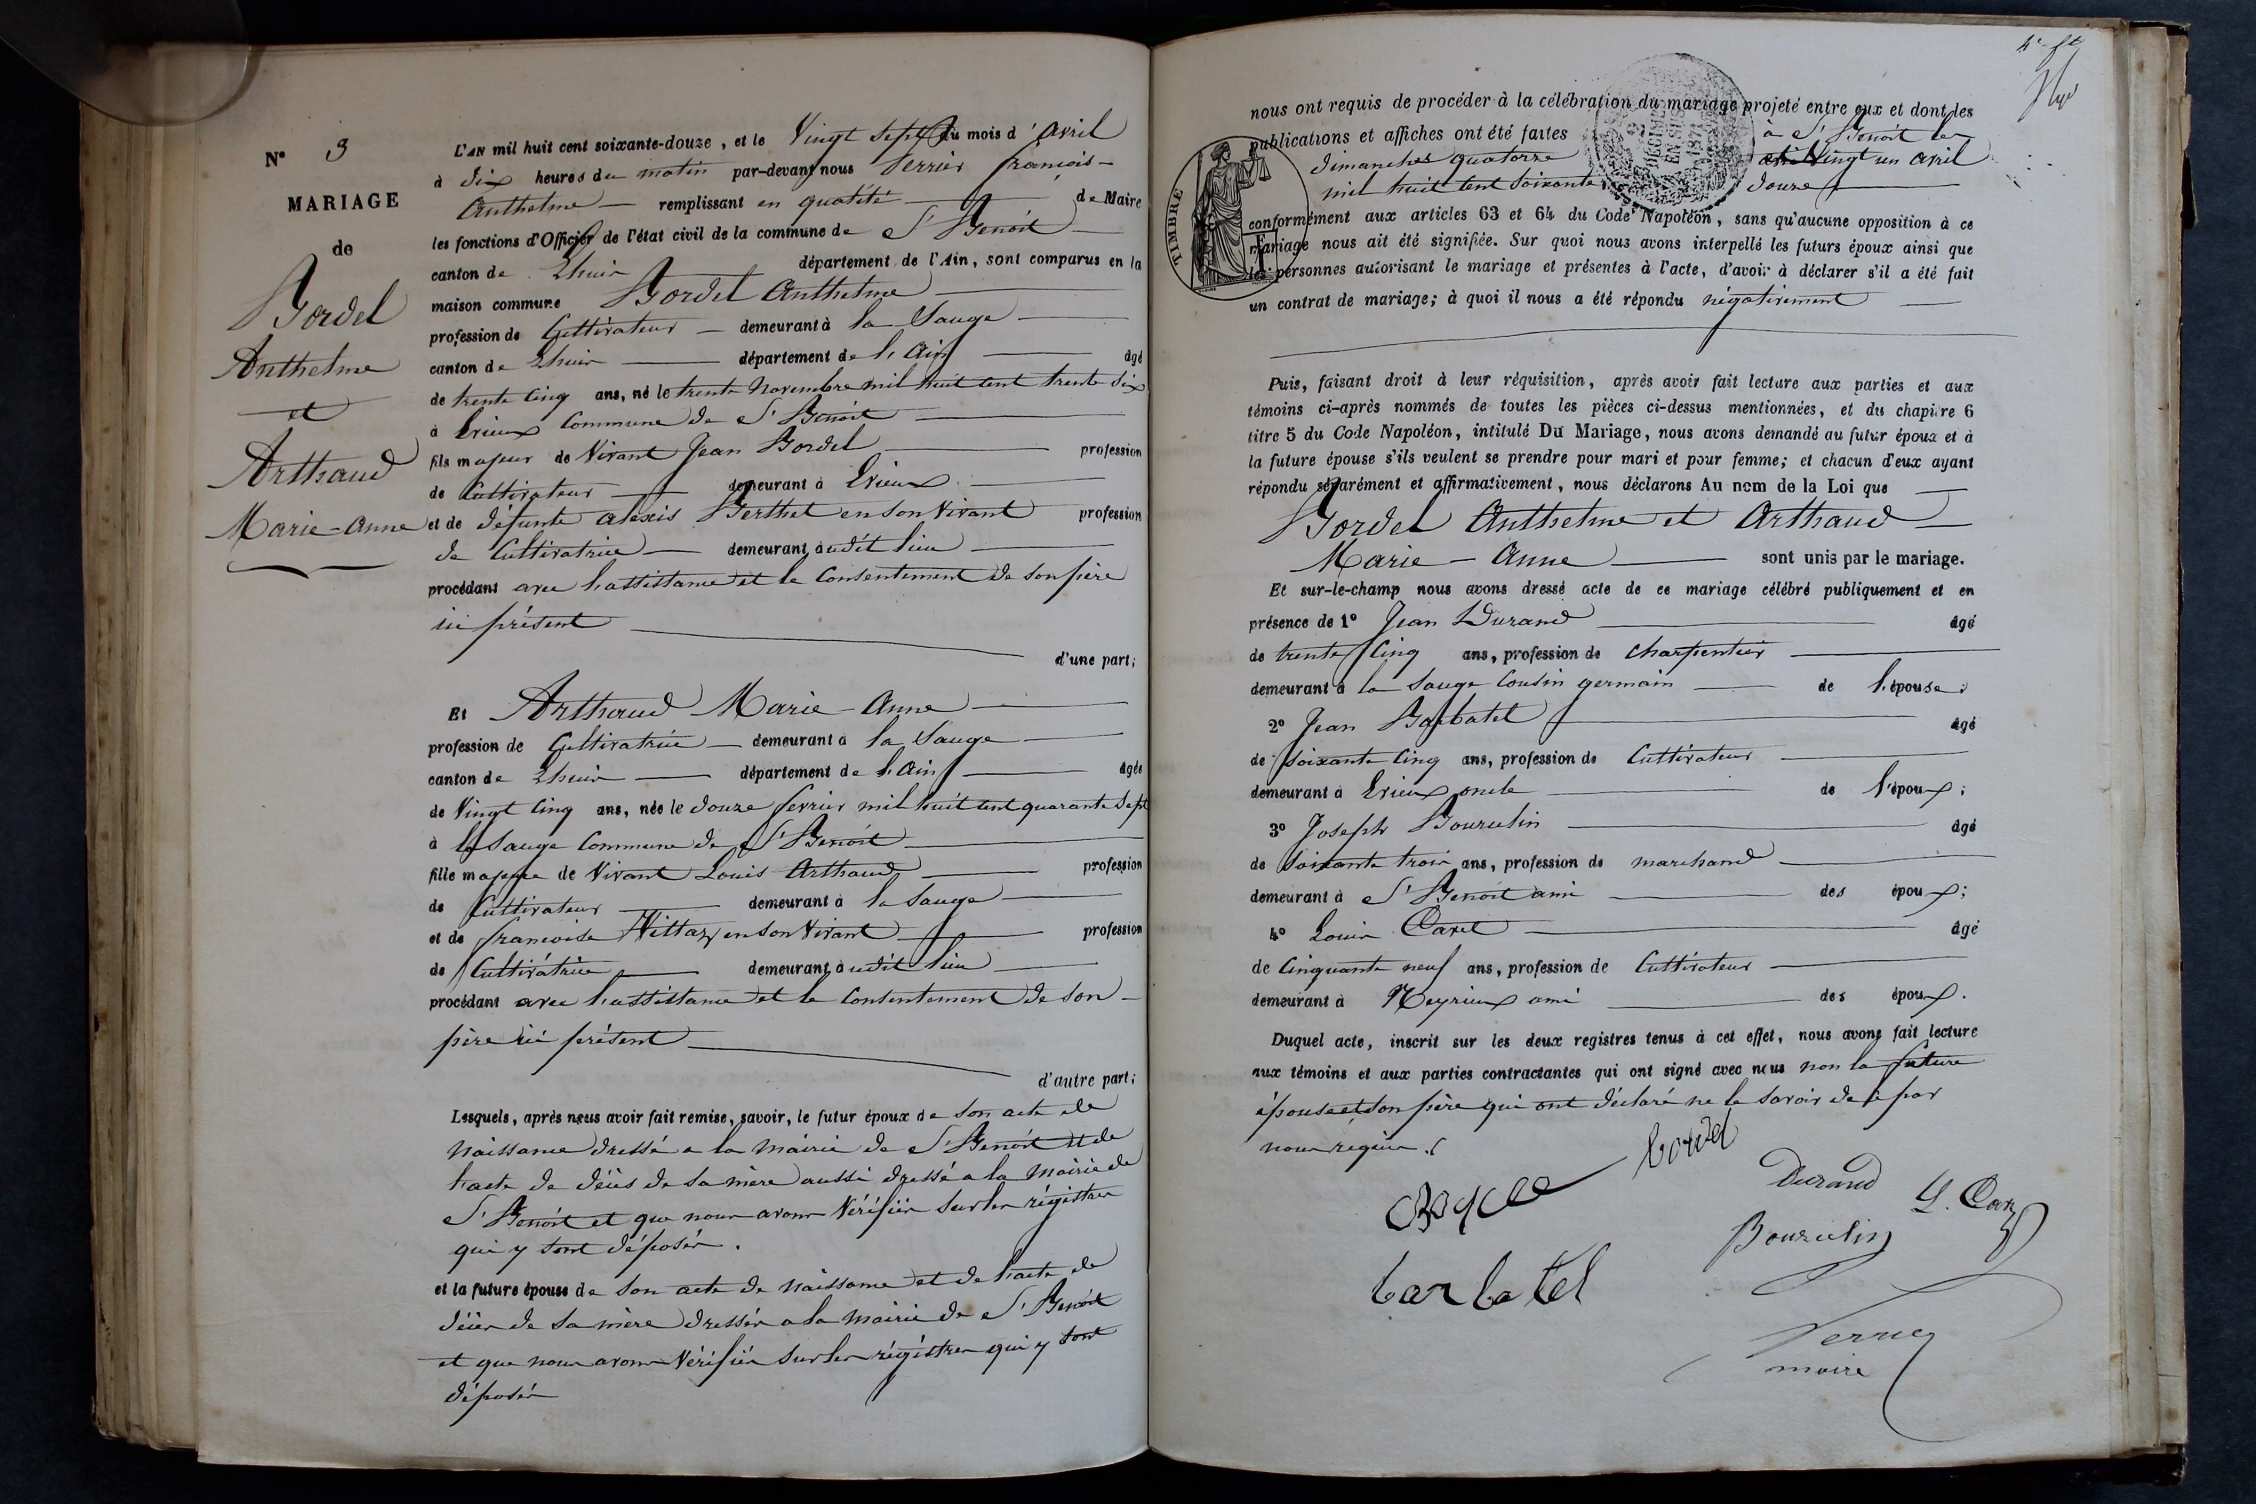 N° 3
MARIAGE
de
Bordel
Anthelme
et
Arthaud
Marie-Anne
L'AN mil huit cent soixante-douze, et le Vingt sept du mois d'avril
à dix heures du matin par-devant nous Perrier François-
Anthelme remplissant en qualité de Maire
les fonctions d'Officier de l'état civil de la commune de St Benoît
canton de Lhuis département de l'Ain, sont comparus en la
maison commune Bordel Anthelme
profession de Cultivateur demeurant à la Sauge
canton de Lhuis département de l'Ain âgé
de trente Cinq ans, né le trente Novembre mil huit cent trente six
à Evieux Commune de St Benoît
fils majeur de Vivant Jean Bordel profession
de Cultivateur demeurant à Evieux
et de défunte alexis Berthet en son Vivant profession
de Cultivatrice demeurant audit lieu
procédant avec l'assistance et le Consentement de son père
ici présent
d'une part;
Et Arthaud Marie-Anne
profession de Cultivatrice demeurant à la Sauge
canton de Lhuis département de l'Ain âgée
de Vingt Cinq ans, née le douze fevrier mil huit cent quarante sept
à la Sauge Commune de St Benoît
fille majeure de Vivant Louis Arthaud profession
de Cultivateur demeurant à la Sauge
et de francoise Vittaz en son Vivant profession
de Cultivatrice demeurant audit lieu
procédant avec l'assistance et le Consentement de son
père ici présent
d'autre part;
Lesquels, après nous avoir fait remise, savoir, le futur époux de son acte de
Naissance dressé a la Mairie de St Benoît et de
l'acte de décès de sa mère aussi dressé a la Mairie de
St Benoît et que nous avons Vérifiés sur les régistres
qui y sont déposés.
et la future épouse de son acte de Naissance et de l'acte de
décès de sa mère dressés a la Mairie de St Benoît
et que nous avons Vérifiés sur les régistres qui y sont
déposés
nous ont requis de procéder à la célébration du mariage projeté entre eux et dont les
publications et affiches ont été faites à St Benoît les
dimanches quatorze et Vingt un avril
mil huit cent soixante douze
TIMBRE
conformément aux articles 63 et 64 du Code Napoléon, sans qu'aucune opposition à ce
mariage nous ait été signifiée. Sur quoi nous avons interpellé les futurs époux ainsi que
les personnes autorisant le mariage et présentes à l'acte, d'avoir à déclarer s'il a été fait
un contrat de mariage; à quoi il nous a été répondu négativement
Puis, faisant droit à leur réquisition, après avoir fait lecture aux parties et aux
témoins ci-après nommés de toutes les pièces ci-dessus mentionnées, et du chapitre 6
titre 5 du Code Napoléon, intitulé Du Mariage, nous avons demandé au futur époux et à
la future épouse s'ils veulent se prendre pour mari et pour femme; et chacun d'eux ayant
répondu séparément et affirmativement, nous déclarons Au nom de la Loi que
Bordel Anthelme et Arthaud
Marie-Anne sont unis par le mariage.
Et sur-le-champ nous avons dressé acte de ce mariage célébré publiquement et en
présence de 1° Jean Durand âgé
de trente Cinq ans, profession de Charpentier
demeurant à la Sauge Cousin germain de l'épouse;
2° Jean Barbatel âgé
de soixante Cinq ans, profession de Cultivateur
demeurant à Evieux oncle de l'époux;
3° Joseph Bourulin âgé
de Soixante trois ans, profession de marchand
demeurant à St Benoît ami des époux;
4° Louis Caret âgé
de Cinquante neuf ans, profession de Cultivateur
demeurant à Neyrieux ami des époux.
Duquel acte, inscrit sur les deux registres tenus à cet effet, nous avons fait lecture
aux témoins et aux parties contractantes qui ont signé avec nous non la future
épouse et son père qui ont déclaré ne le savoir de ce par
nous réquis.
bordel
Durand
L. Car
Bourulin
barbatel
Perrier
maire